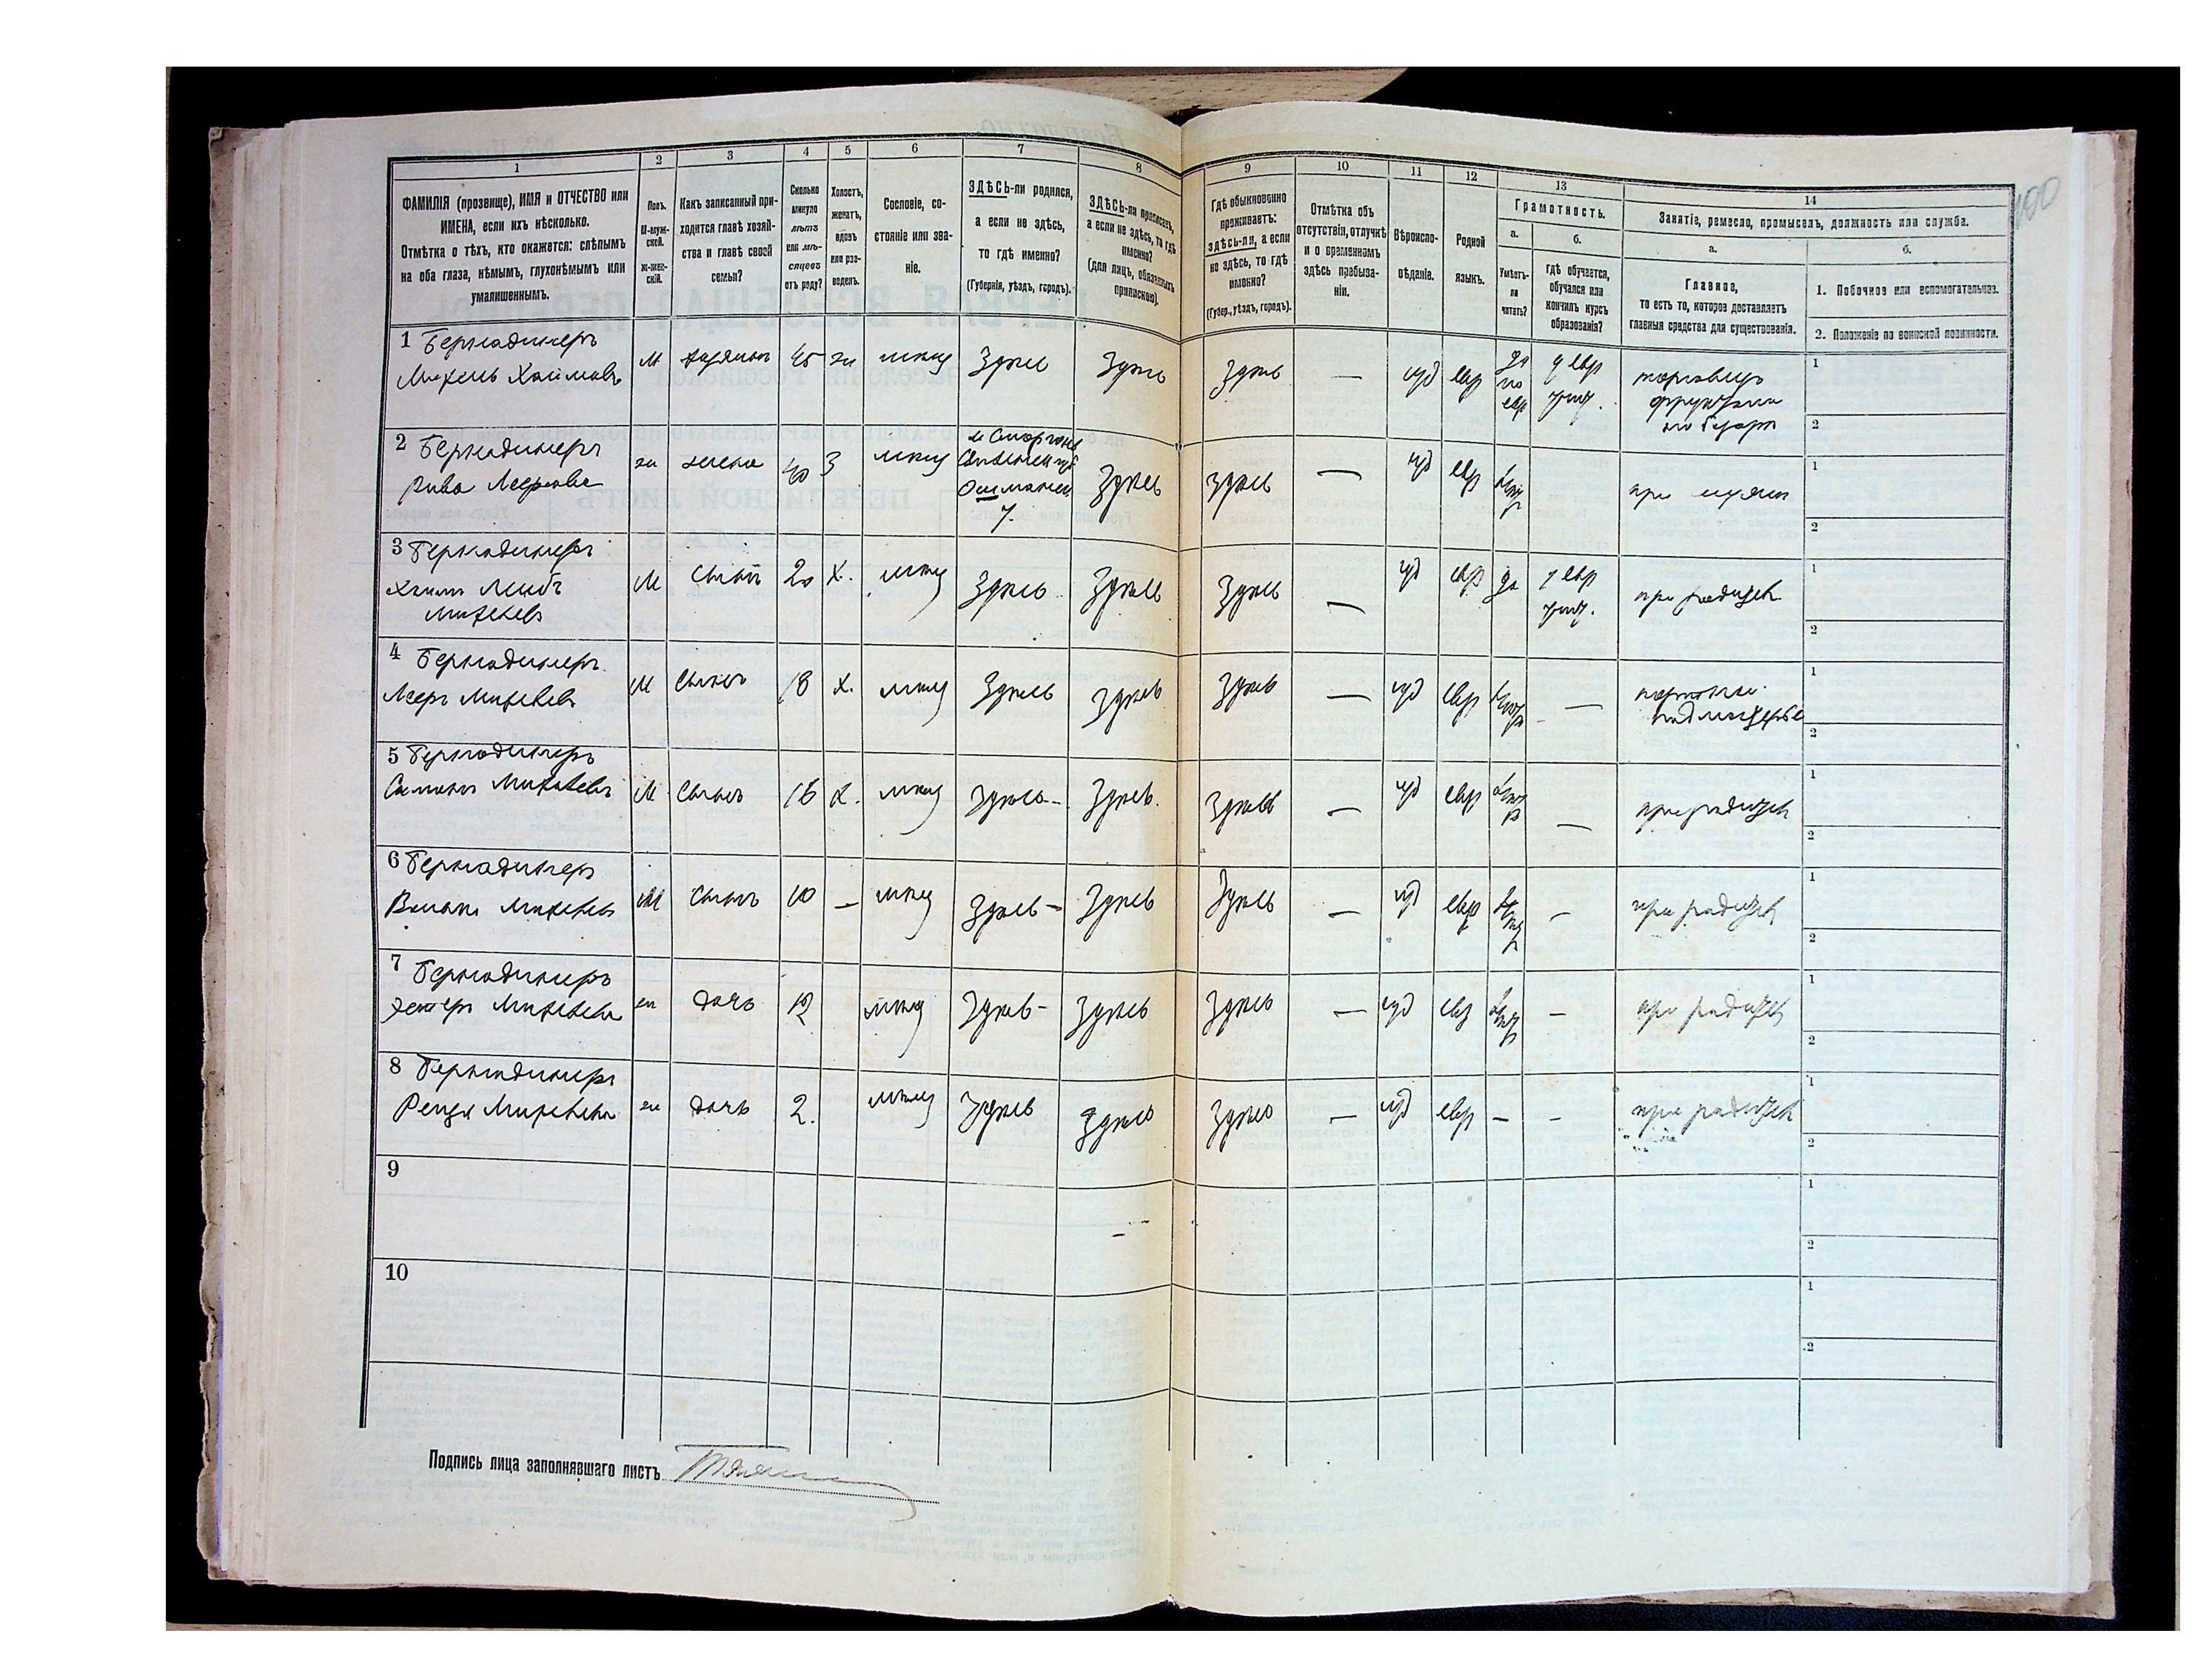 1 2 3 4 5 6 7 8 9 10 11 12 13 14
ФАМИЛІЯ (прозвище), ИМЯ и ОТЧЕСТВО или
ИМЕНА, если ихъ нѣсколько.
Отмѣтка о тѣхъ, кто окажется: слѣпымъ
на оба глаза, нѣмымъ, глухонѣмымъ или
умалишеннымъ.
Полъ.
М-муж-
ской.
ж-жен-
скій.
Какъ записанный при-
ходится главѣ хозяй-
ства и главѣ своей
семьи?
Сколько
минуло
лѣтъ
или мѣ-
сяцевъ
отъ роду?
Холостъ,
женатъ,
вдовъ
или раз-
веденъ.
Сословіе, со-
стояніе или зва-
ніе.
ЗДѢСЬ-ли родился,
а если не здѣсь,
то гдѣ именно?
(Губернія, уѣздъ, городъ).
ЗДѢСЬ-ли приписанъ,
а если не здѣсь, то гдѣ
именно?
(для лицъ, обязанныхъ
припиской).
Гдѣ обыкновенно
проживаетъ:
здѣсь-ли, а если
не здѣсь, то гдѣ
именно?
(Губер., уѣздъ, городъ).
Отмѣтка объ
отсутствіи, отлучкѣ
и о временномъ
здѣсь пребыва-
ніи.
Вѣроиспо-
вѣданіе.
Родной
языкъ.
Грамотность.
а.
Умѣетъ-
ли
читать?
б.
гдѣ обучается,
обучался или
кончилъ курсъ
образованія?
Занятіе, ремесло, промыселъ, должность или служба.
а.
Главное,
то есть то, которое доставляетъ
главныя средства для существованія.
б.
1. Побочное или вспомогательное.
2. Положеніе по воинской повинности.
1 Бернадинеръ
Михель Хаимовъ
М хозяинъ 45 ж мѣщ Здѣсь Здѣсь Здѣсь — іуд евр да по евр у евр учит. торговецъ
фруктами
2 Бернадинеръ
Рива Лееровна
ж жена 40 З мѣщ м Сморгонь
Виленск губ
Ошмянск.
у. Здѣсь Здѣсь — іуд евр при мужѣ
3 Бернадинеръ
Хаимъ Лейбъ
Михелевъ
М Сынъ 20 Х. мѣщ Здѣсь Здѣсь Здѣсь — іуд евр да у евр учит. при родителѣ
4 Бернадинеръ
Лееръ Михелевъ
М Сынъ 18 Х. мѣщ Здѣсь Здѣсь Здѣсь — іуд евр — портной
подмастерье
5 Бернадинеръ
Симонъ Михелевъ
М Сынъ 16 Х. мѣщ Здѣсь Здѣсь. Здѣсь — іуд евр — при родителѣ
6 Бернадинеръ
Михелевъ
М Сынъ 10 — мѣщ Здѣсь Здѣсь Здѣсь — іуд евр — при родителѣ
7 Бернадинеръ
Эстеръ Михелевна
ж дочь 12 мѣщ Здѣсь Здѣсь Здѣсь — іуд евр — при родителѣ
8 Бернадинеръ
Михелевна
ж дочь 2. мѣщ Здѣсь Здѣсь Здѣсь — іуд евр — — при родителѣ
9
10
Подпись лица заполнявшаго листъ